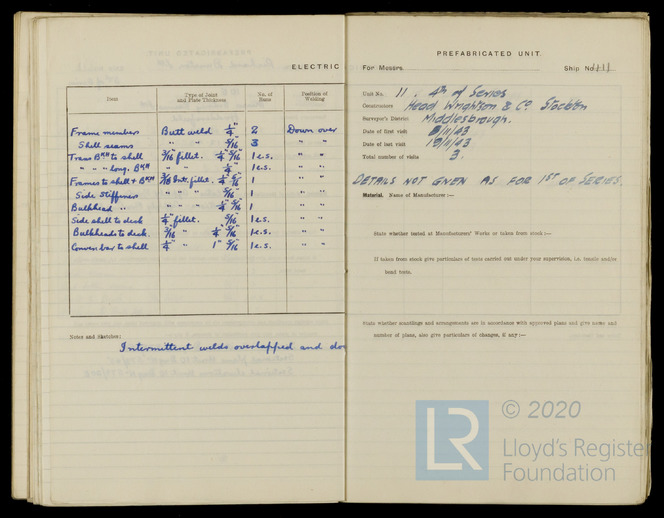 ELECTRIC
Item Type of Joint and Plate Thickness No. of Runs Position of Welding
Frame members Butt weld 1/4" 2 Down over
Shell seams " " 5/16" 3 " "
Trans BKH to shell 3/16" fillet. 1/4" 5/16" 1 e.s. " "
" " long. BKH " " 1/4" 1 e.s. " "
Frames to shell & BKH 3/16 Int. fillet. 1/4" 5/16" 1 " "
Side Stiffeners " " " 5/16" 1 " "
Bulkhead " " " " 1/4" 1 " "
Side shell to deck 1/4" fillet. 5/16" 1 e.s. " "
Bulkheads to deck. 3/16" " 1/4" 5/16" 1 e.s. " "
bar to shell 1/4" " 1" 5/16" 1 e.s. " "
Notes and Sketches:
Intermittent welds overlapped and
PREFABRICATED UNIT.
For Messrs. Ship No.
Unit No. 11. 4th of Series
Constructors Head Wrightson & Co Stockton
Surveyor's District Middlesbrough.
Date of first visit /11/43
Date of last visit 19/11/43
Total number of visits 3.
DETAILS NOT GIVEN AS FOR 1ST OF SERIES.
Material. Name of Manufacturer :—
State whether tested at Manufacturers' Works or taken from stock :—
If taken from stock give particulars of tests carried out under your supervision, i.e. tensile and/or
bend tests.
State whether scantlings and arrangements are in accordance with approved plans and give names and
number of plans, also give particulars of changes, if any :—
LR
© 2020
Lloyd's Register
Foundation